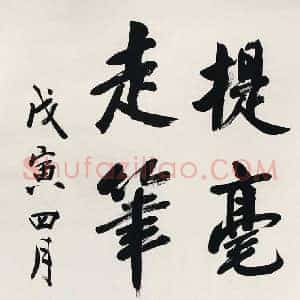 提毫
走筆
戊寅四月
Shufaziliao.COM